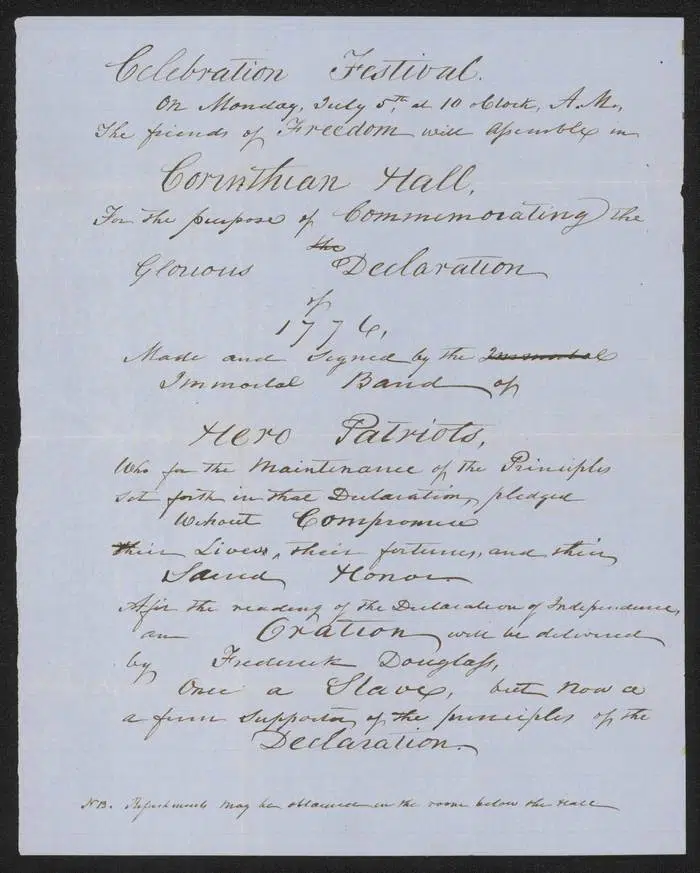 Celebration Festival.
On Monday, July 5th, at 10 oClock, A.M,
The friends of Freedom will Assemble in
Corinthian Hall,
For the purpose of Commemorating the
the
Glorious Declaration
of
1776,
Made and Signed by the Immortal
Immortal Band of
Hero Patriots,
Who for the Maintenance of the Principles
Set forth in that Declaration, pledged
Without Compromise
their Lives, their fortunes, and their
Sacred Honor
After the reading of the Declaration of Independence,
an Oration will be delivered
by Frederick Douglass,
Once a Slave, but now a
a firm supporter of the principles of the
Declaration.
NB. Refreshments may be obtained in the room below the Hall